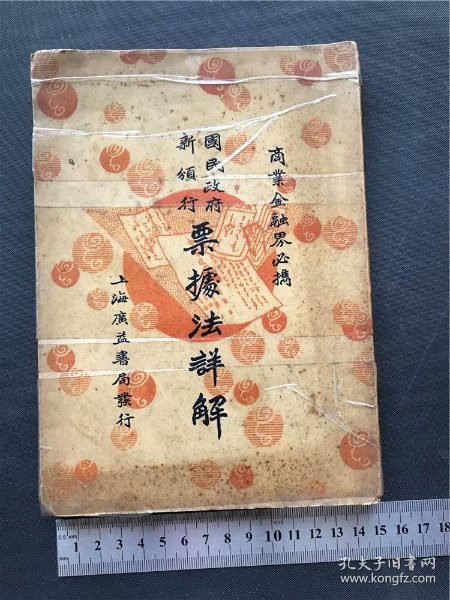 商業金融界必擕
國民政府
新頒行
票據法詳解
上海廣益書局發行
0.5mm
1 2 3 4 5 6 7 8 9 10 11 12 13 14 15 16 17 18
mm
孔夫子旧书网
www.kongfz.com